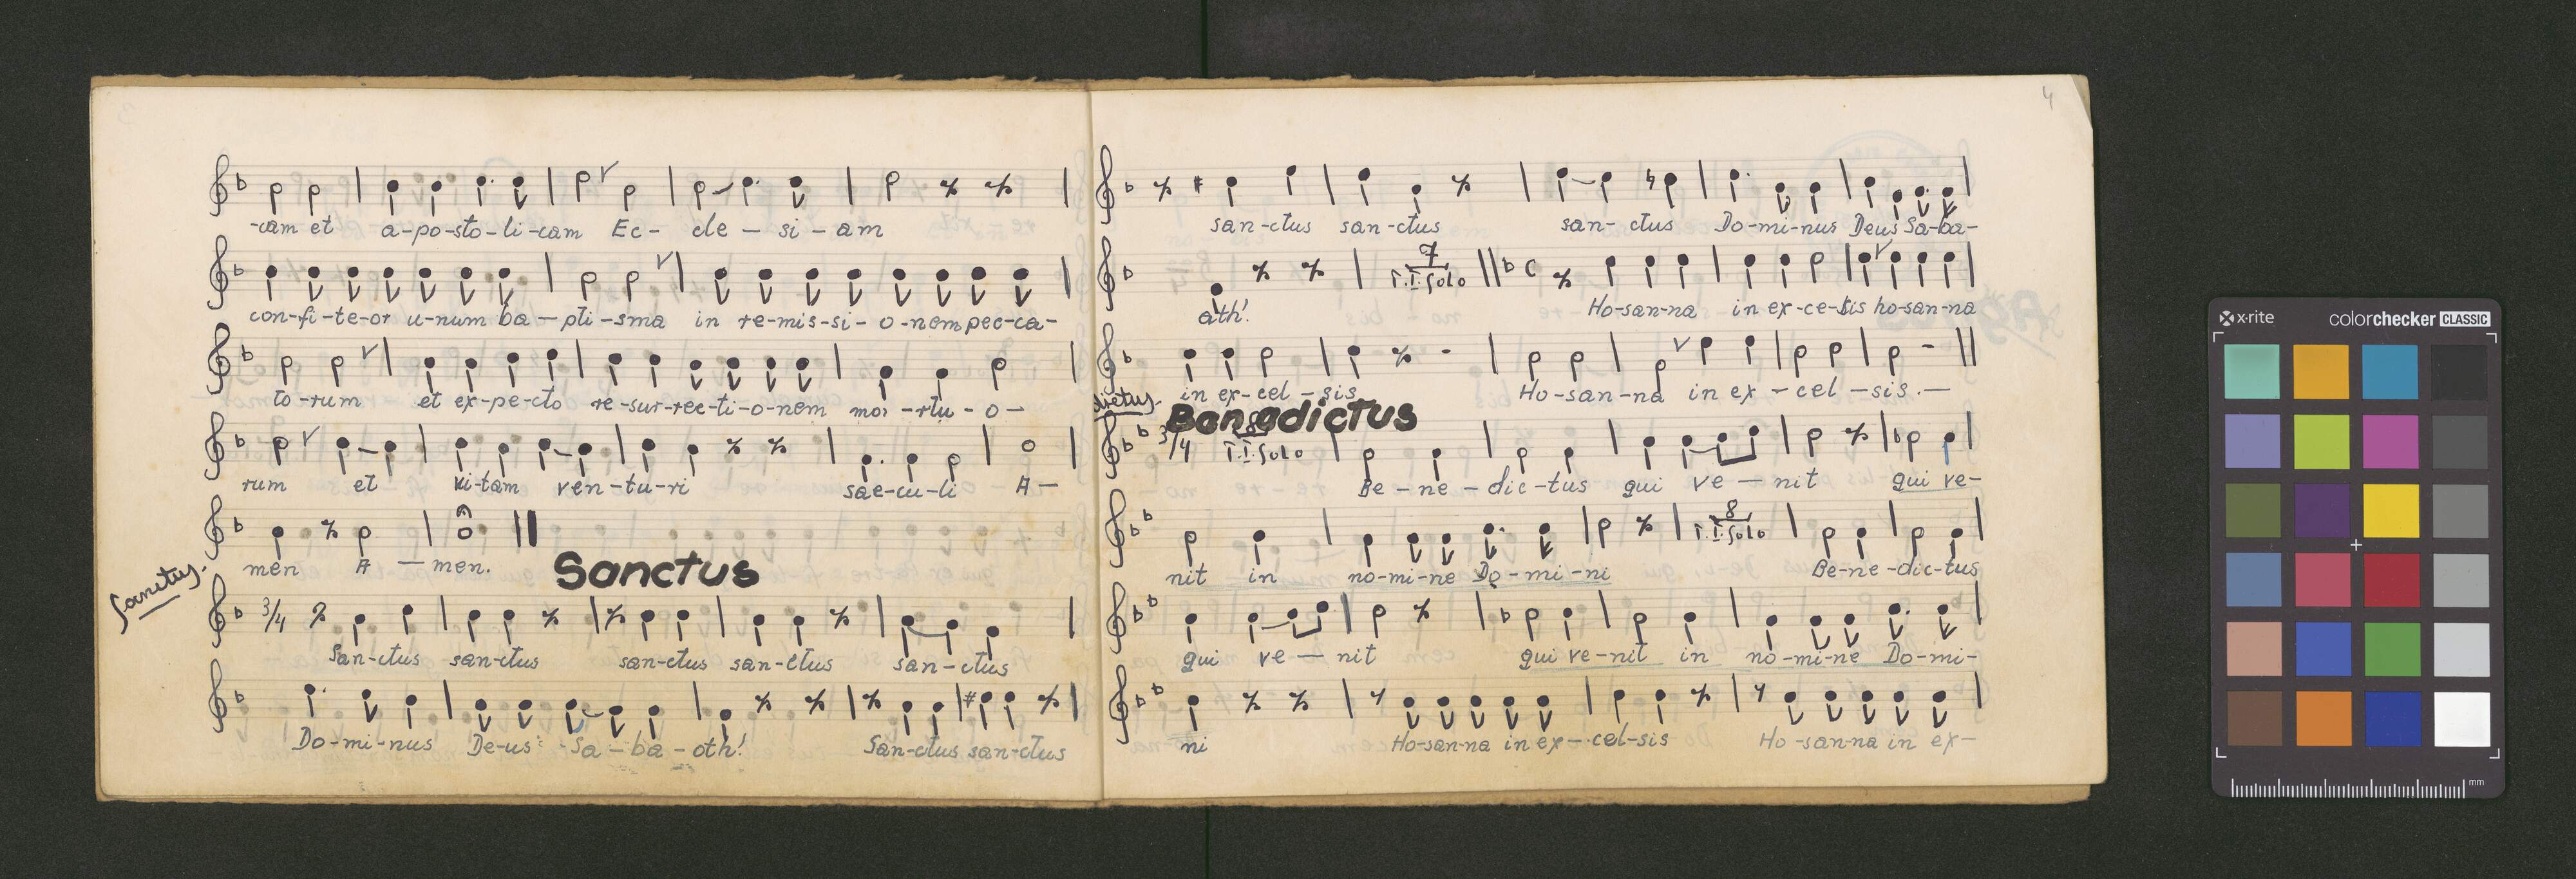 -cam et a-po-sto-li-cam Ec- cle - si - am
con-fi-te-or u-num ba - pti - sma in re-mis-si- o -nem pec-ca-
to -rum et ex-pe-cto re-sur-rec-ti-o-nem mor -rtu - o -
rum et vi-tam ven-tu-ri sae-cu-li A -
men A - men.
Sanctus
Sanctus.
San-ctus san-ctus san-ctus san-ctus san-ctus
3/4
Do-mi-nus De-us Sa-ba-oth!
San-ctus san-ctus
4
san-ctus san-ctus san- ctus Do-mi-nus Deus Sa-ba-
7
T.I. Solo
C
ath! Ho-san-na in ex-ce-lsis ho-san-na
in ex-cel-sis Ho-san-na in ex-cel-sis.-
Benedictus
3/4
8
T.I. Solo
Be-ne-dic-tus qui ve-nit qui ve-
8
T.I. Solo
nit in no-mi-ne Do-mi-ni Be-ne-dic-tus
qui ve-nit qui ve-nit in no-mi-ne Do-mi-
ni Ho-san-na in ex-cel-sis Ho-san-na in ex-
x-rite colorchecker CLASSIC
mm